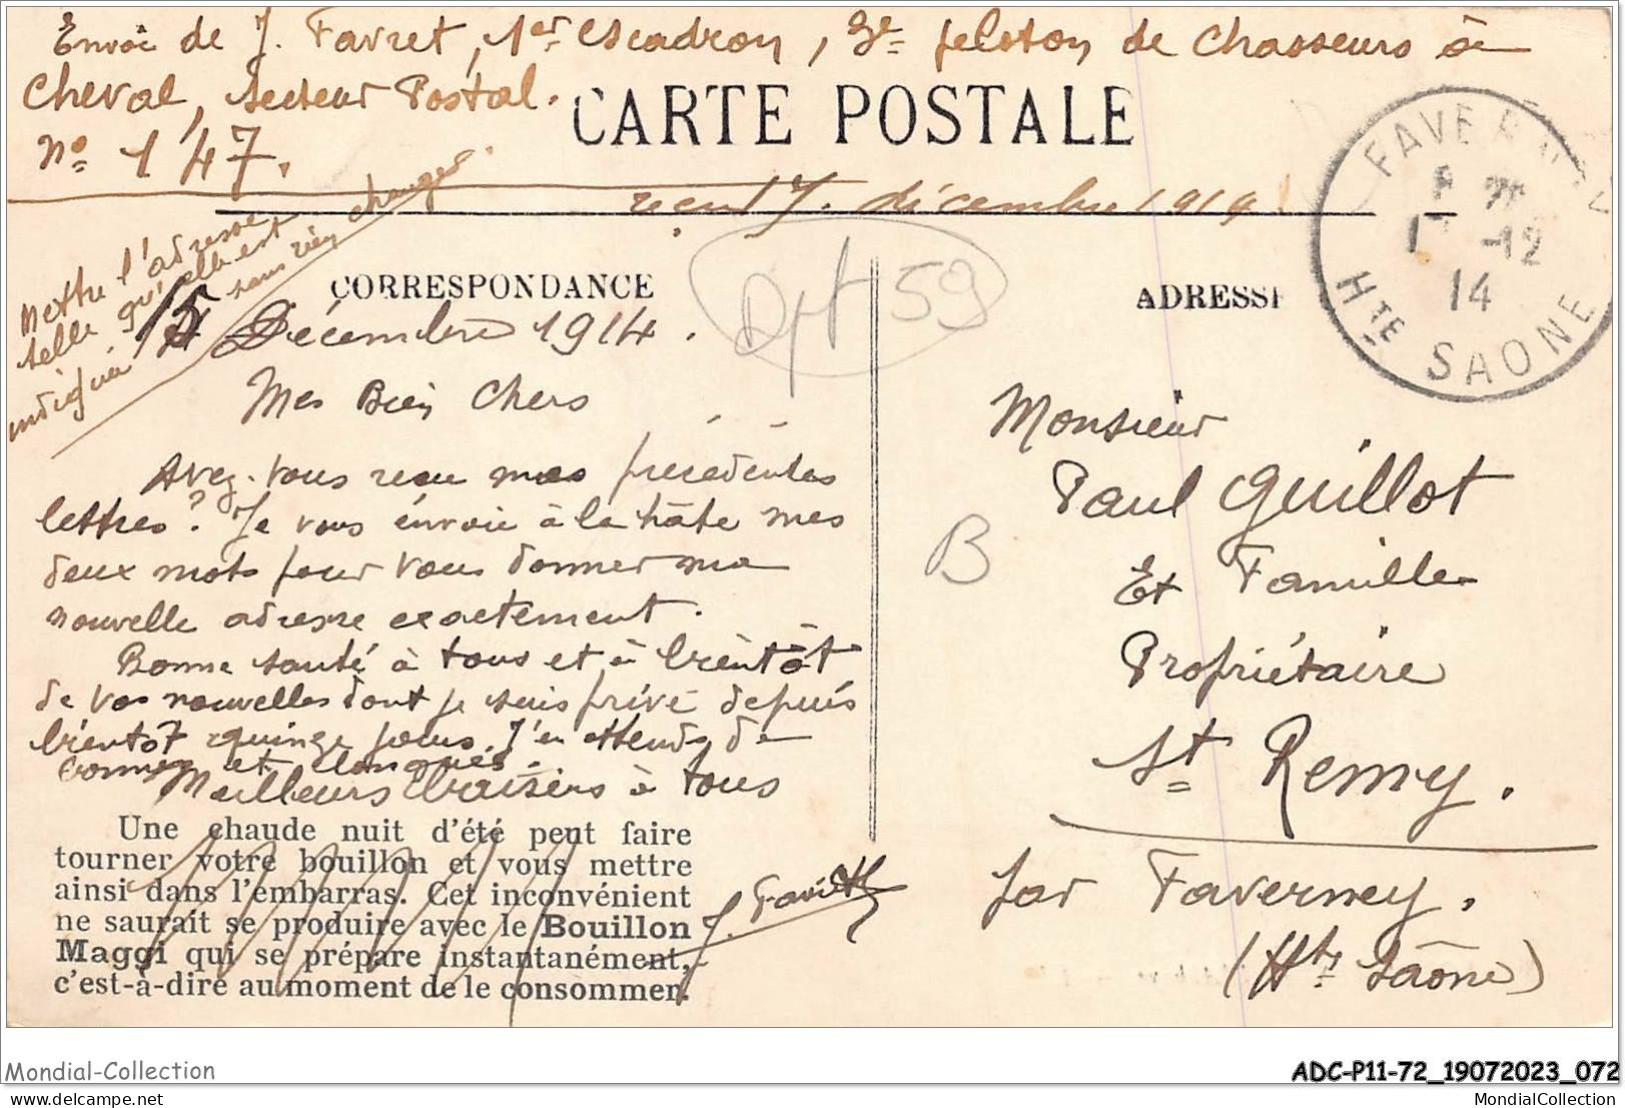 Envoi de J. Favret, 1er escadron, 3e peloton de Chasseurs à
Cheval, Secteur Postal.
No 147.
CARTE POSTALE
reçu 17. décembre 1914
Mettre l'adresse
telle qu'elle est
indiquée sans rien changer.
FAVERNEY
17 -12
14
Hte SAONE
CORRESPONDANCE
ADRESSE
Dpt 59
15 Décembre 1914.
Mes Bien Chers
Avez-vous reçu mes précédentes
lettres? Je vous envoie à la hâte mes
deux mots pour vous donner ma
nouvelle adresse exactement.
Bonne santé à tous et à bientôt
de vos nouvelles dont je suis privé depuis
bientôt quinze jours. J'en attends de
bonnes et longues.
Meilleurs baisers à tous
J. Favret
Monsieur
Paul Guillot
Et Famille
Propriétaire
St Remy.
par Faverney.
(Hte Saône)
B
Une chaude nuit d'été peut faire
tourner votre bouillon et vous mettre
ainsi dans l'embarras. Cet inconvénient
ne saurait se produire avec le Bouillon
Maggi qui se prépare instantanément,
c'est-à-dire au moment de le consommer.
Mondial-Collection
ADC-P11-72_19072023_072
delcampe.net
MondialCollection